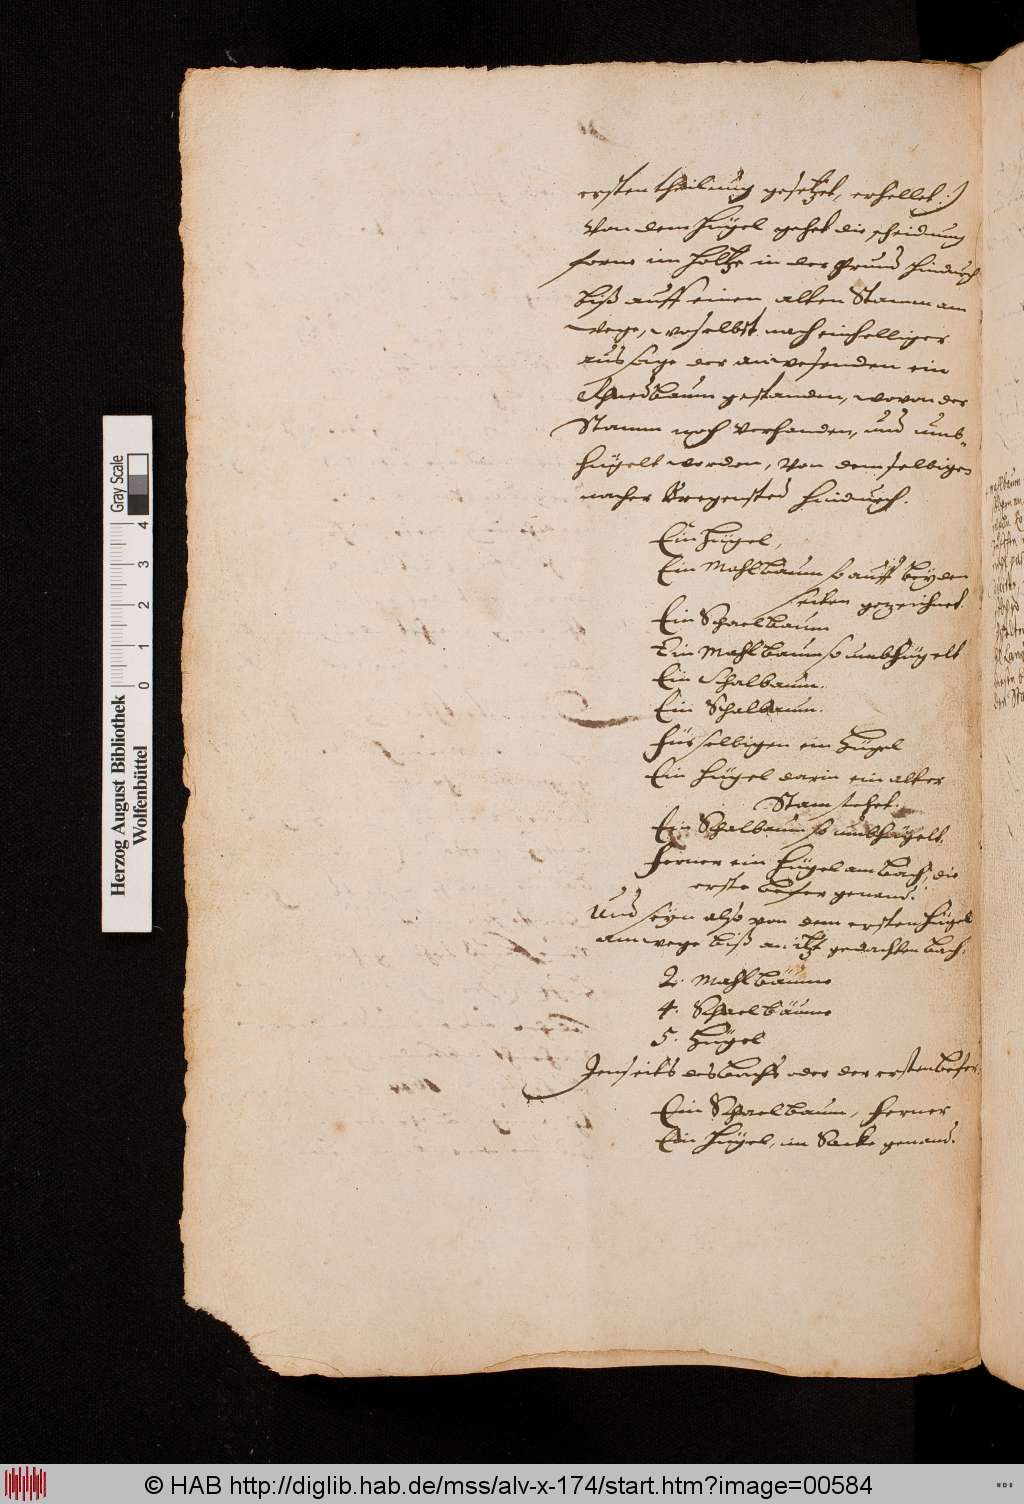 ersten theilung gesetzet, erhellet.)
Von dem Hügel gehet die scheidung
forne im Holtze in der Grund hindurch
biß auff einen alten Stamm am
wege, woselbst nach einhelliger
aussage der anwesenden ein
Schnedbaum gestanden, wovon der
Stamm noch verhanden, und umb-
hügelt worden, Von dem selbigen
nacher hindurch.
Ein Hügel,
Ein Mahlbaum so auff beyden
seiten gezeichnet.
Ein Schaelbaum
Ein Mahlbaum so umbhügelt
Ein schalbaum.
Ein Schalbaum.
selbigen ein Hügel
Ein Hügel darin ein alter
Stam stehet.
Ein Schalbaum so umbhügelt.
Ferner ein Hügel am bach, die
erste genand.
Und seyn also von dem ersten Hügel
am wege biß an itzt gedachten bach.
2. Mahlbäume
4. Schaelbäume
5. Hügel
Jenseits des bachs oder der ersten
Ein Schaelbaum, Ferner
Ein Hügel, im Sacke genand.
Herzog August Bibliothek
Wolfenbüttel
0 1 2 3 4
Gray Scale
© HAB http://diglib.hab.de/mss/alv-x-174/start.htm?image=00584